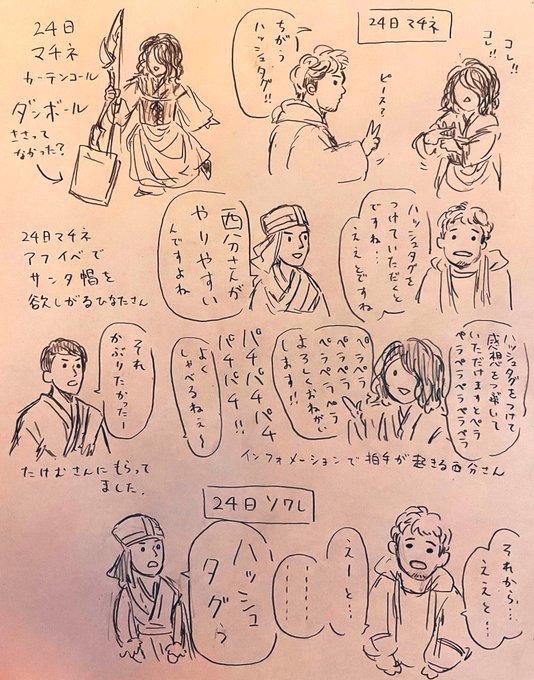 24日
マチネ
カーテンコール
ダンボール
ささって
なかった?
24日マチネ
コレ!!
コレ!!
ピース?
ちがう
ハッシュタグ!!
ハッシュタグを
つけていただくと
ですね…
ええとですね
西分さんが
やりやすい
んですよね
24日マチネ
アフイベで
サンタ帽を
欲しがるひなたさん
ハッシュタグをつけて
感想をつぶやいて
いただけますとペラ
ペラペラペラペラペラ
ペラペラ
ペラペラ
ペラペラ
よろしくおねがい
します!!
パチパチ
パチパチ
パチパチ!!
よく
しゃべるねぇ〜
インフォメーションで拍手が起きる西分さん
それ
かぶりたかったー
たけむさんにもらって
ました.
24日ソワレ
それから…
ええと…
えーと…
ハッシュ
タグぅ